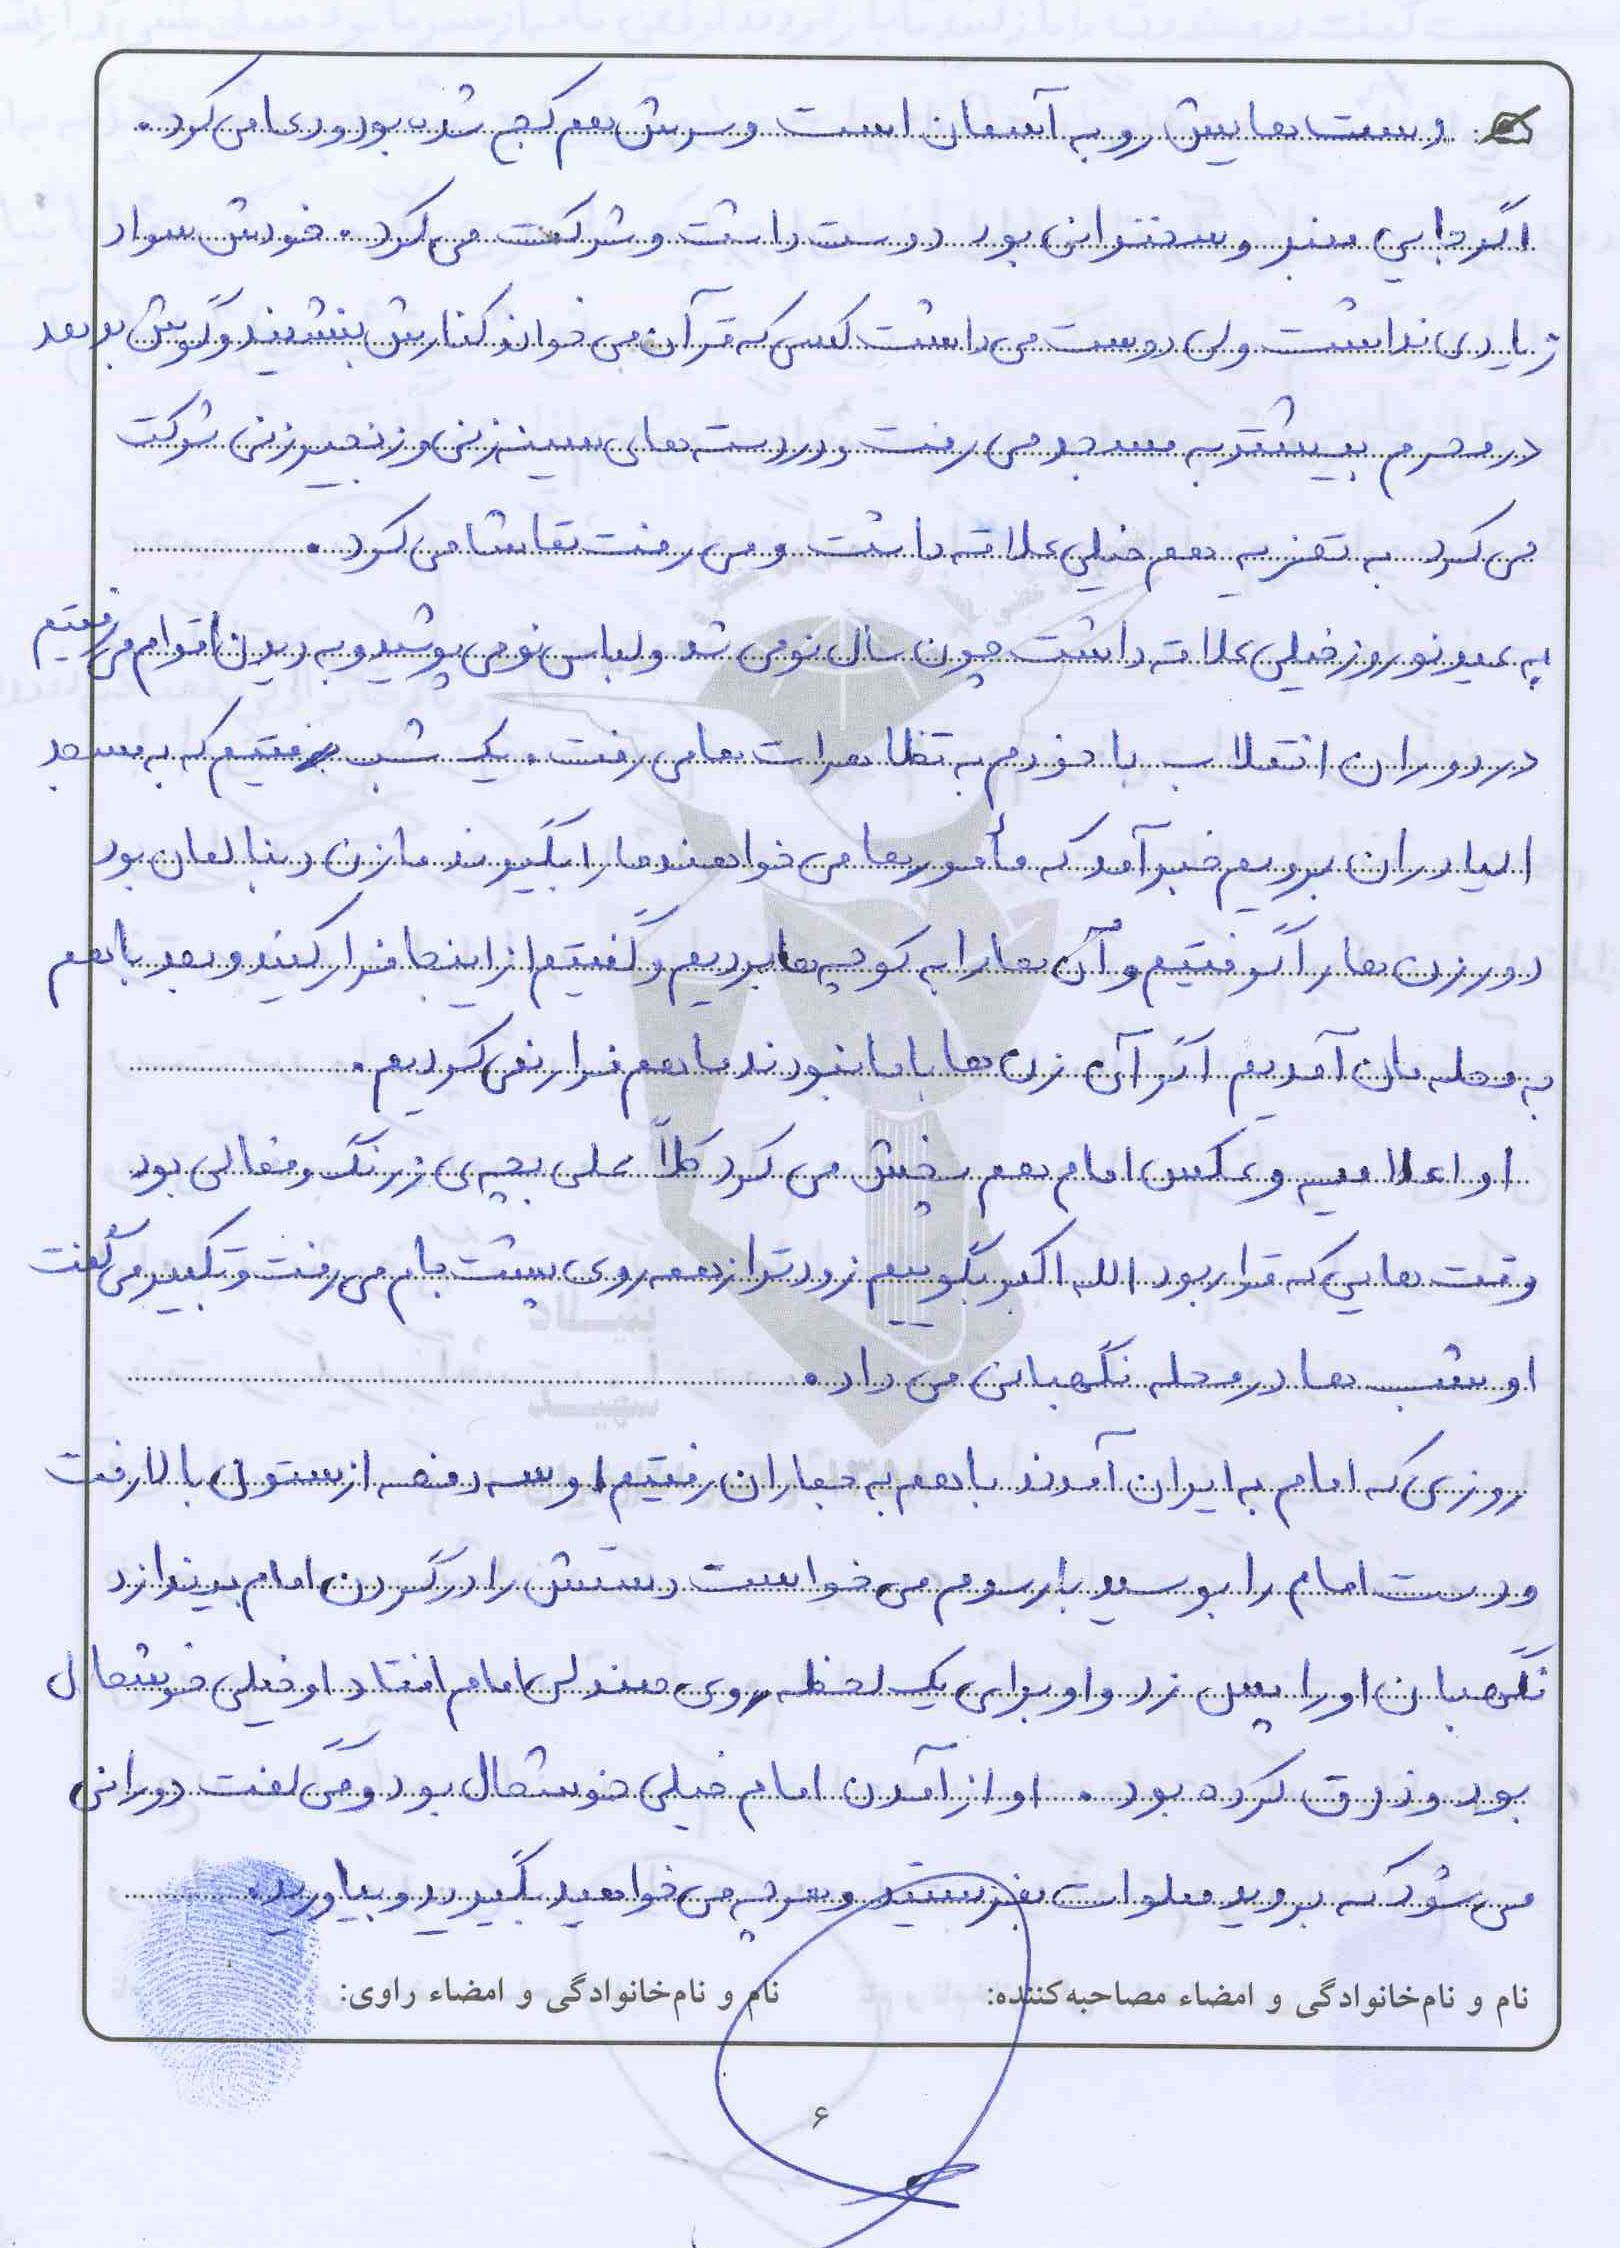 دست هایش رو به آسمان است و سرش هم کج شده بود و دعا می کرد.
اگر جایی منبر و سخنرانی بود دوست داشت و شرکت می کرد. خودش سواد
زیادی نداشت ولی دوست می داشت کسی که قرآن می خواند کنارش بنشیند و گوش بدهد
در محرم بیشتر به مسجد می رفت و در دسته های سینه زنی و زنجیر زنی شرکت
می کرد به تعزیه هم خیلی علاقه داشت و می رفت تماشا می کرد.
به عید نوروز خیلی علاقه داشت چون سال نو می شد و لباس نو می پوشید و به دیدن اقوام می رفتیم
در دوران انقلاب با خودم به تظاهرات ها می رفت. یک شب رفتیم که به مسجد
ابیادران برویم خبر آمد که مأمورها می خواهند ما را بگیرند ما زن دنبالمان بود
دور زن ها را گرفتیم و آن ها را به کوچه ها بردیم و گفتیم از اینجا فرار کنید و بعد با هم
به محله مان آمدیم اگر آن زن ها با ما نبودند ما هم فرار نمی کردیم.
او اعلامیه و عکس امام هم پخش می کرد کلاً علی بچه ی زرنگ و فعالی بود
وقت هایی که قرار بود الله اکبر بگوییم زودتر از همه روی پشت بام می رفت و تکبیر می گفت
او شب ها در محله نگهبانی می داد.
روزی که امام به ایران آمدند با هم به جماران رفتیم او سه دفعه از ستون بالا رفت
و دست امام را بوسید بار سوم می خواست دستش را در گردن امام بیندازد
نگهبان او را پس زد و او برای یک لحظه روی صندلی امام افتاد او خیلی خوشحال
بود و ذوق کرده بود. او از آمدن امام خیلی خوشحال بود و می گفت دورانی
می شود که بروید صلوات بفرستید و هر چه می خواهید بگیرید و بیاورید.
نام و نام‌خانوادگی و امضاء مصاحبه‌کننده: نام و نام‌خانوادگی و امضاء راوی:
۶